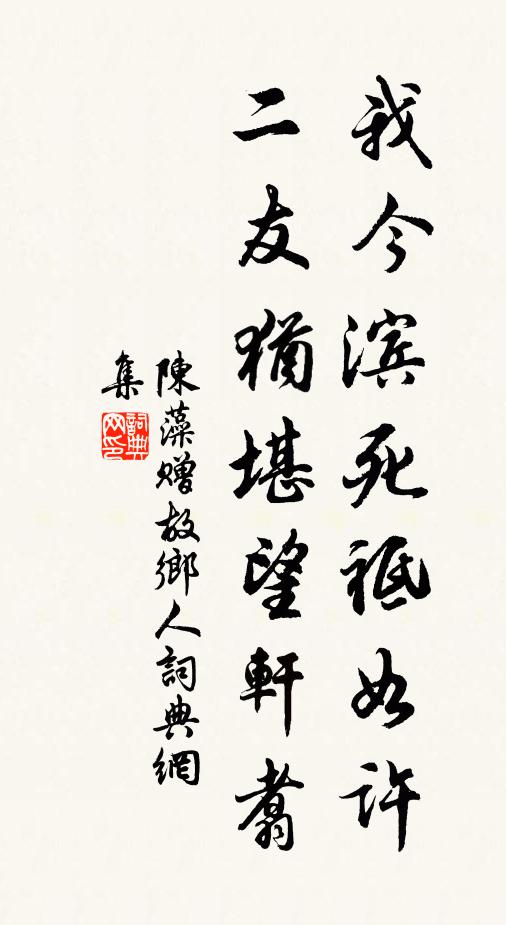 我今滨死祗如许
二友猶堪望軒翥
陳藻赠故鄉人詞典網
集
詞典
网印